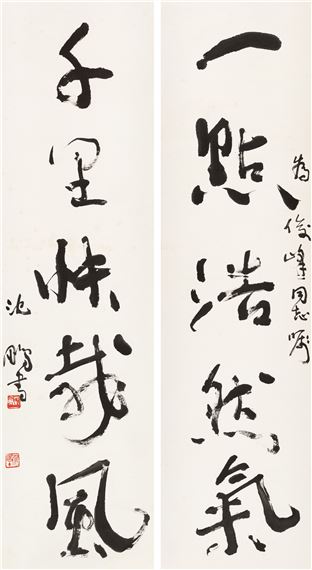 一點浩然氣
為俊峰同志囑
千里快哉風
沈鵬書